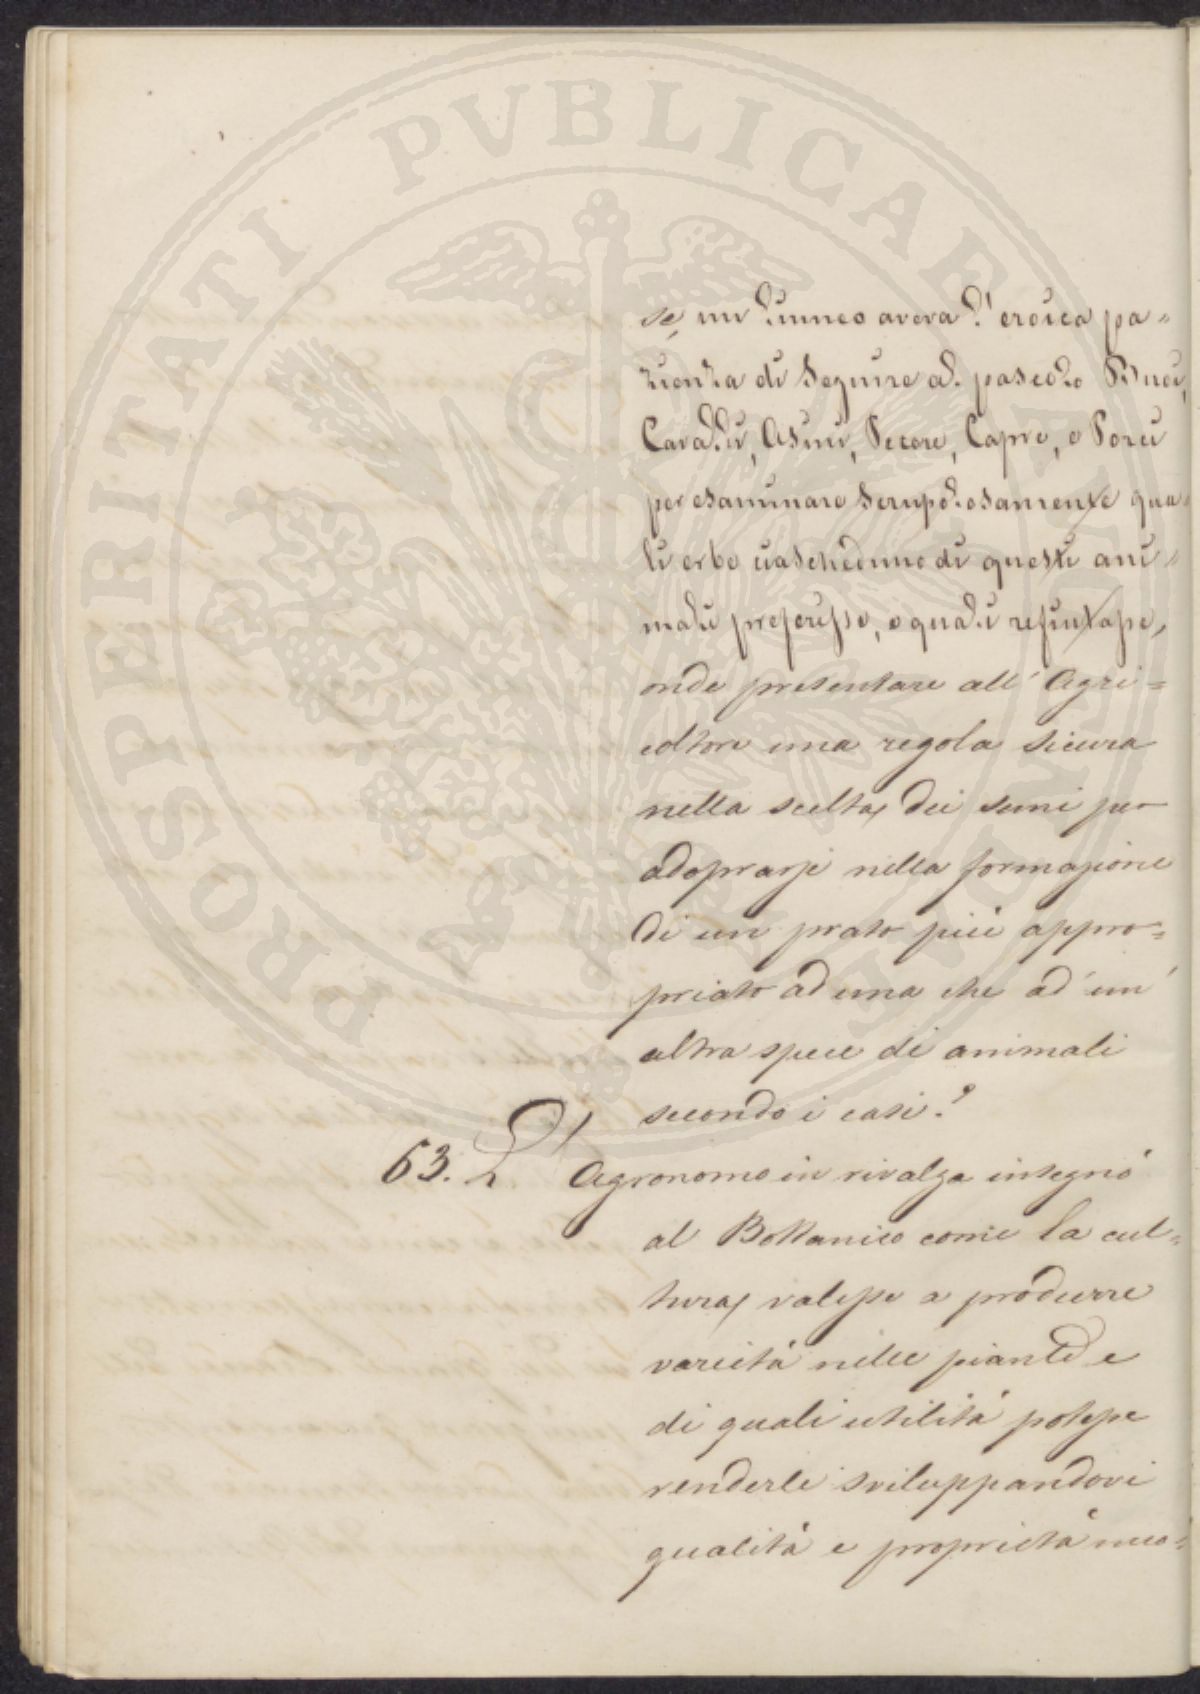 PROSPERITATI PVBLICAE AVGENDAE
se, un Linneo aveva l'eroica pa=
zienza di Seguire al pascolo Buoi,
Cavalli, Asini, Pecore, Capre, e Porci
per esaminare Scrupolosamente qua=
li erbe ciascheduno di questi ani=
mali preferisse, e quali rifiutasse,
onde presentare all' Agri=
coltore una regola sicura
nella scelta, dei semi per
adoprarsi nella formazione
di un prato più appro=
priato ad una che ad un'
altra specie di animali
secondo i casi?
63. L' Agronomo in rivalza integnò
al Bottanico come la cul=
tura, valesse a produrre
varietà nelle piante e
di quali utilità potesse
renderle sviluppandovi
qualità e proprietà nuo=